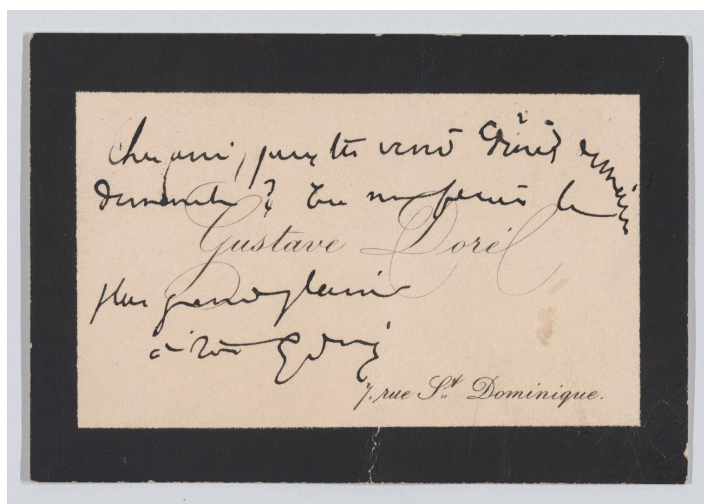 Cher ami, peux tu venir dîner demain
dimanche ? Tu me ferais le
Gustave Doré
plus grand plaisir
à toi G Doré
7, rue St Dominique.